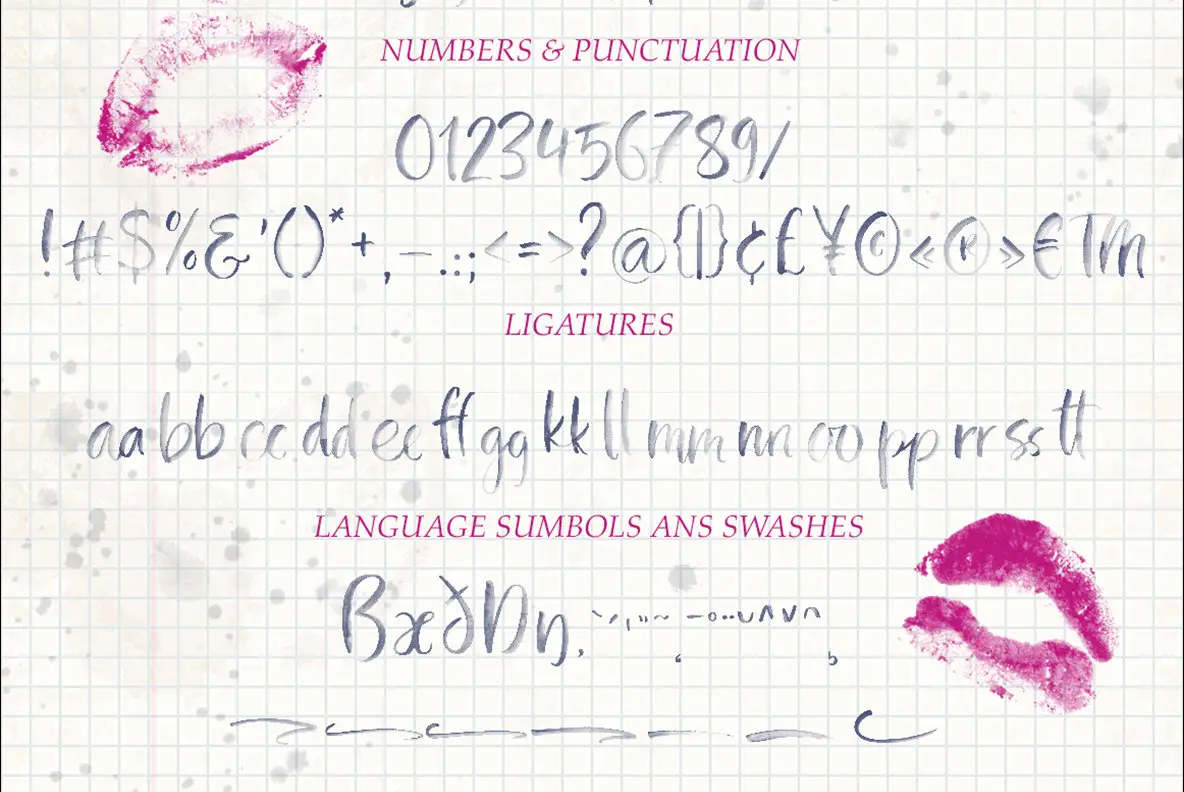 NUMBERS & PUNCTUATION
0123456789/
!#$%&'()*+,-.:;<=>?@{|}¢£¥©«®»€TM
LIGATURES
aa bb cc dd ee ff gg kk ll mm nn oo pp rr ss tt
LANGUAGE SUMBOLS ANS SWASHES
ßæðÐŋ,